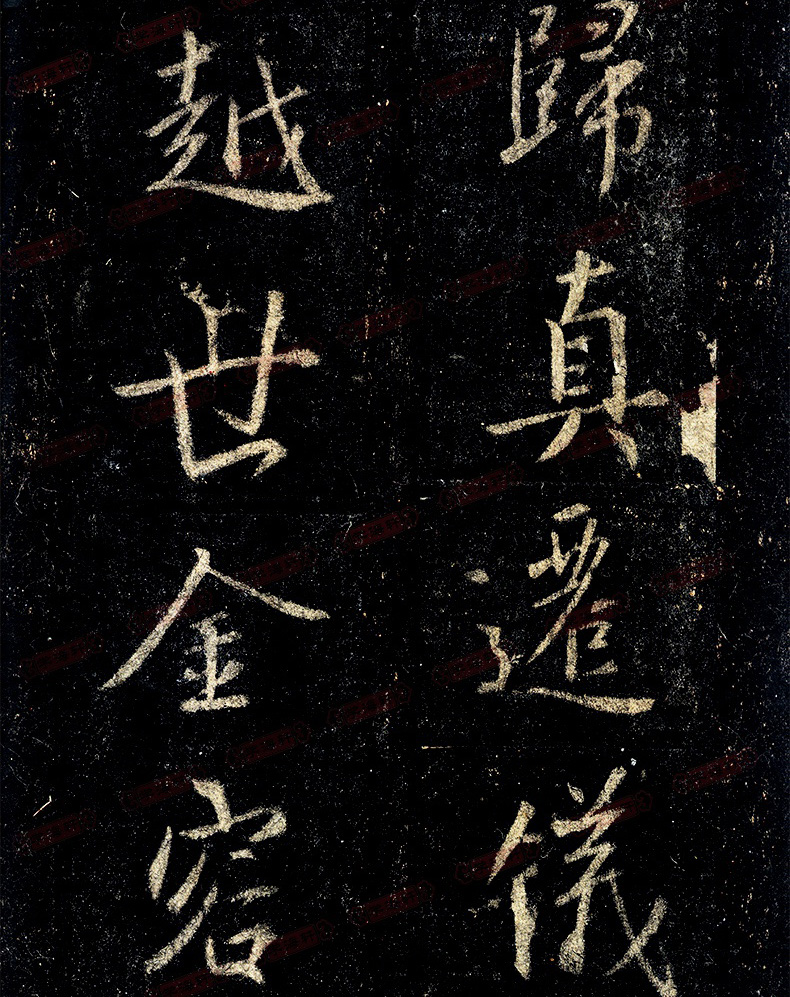 歸真遷儀
越世金容